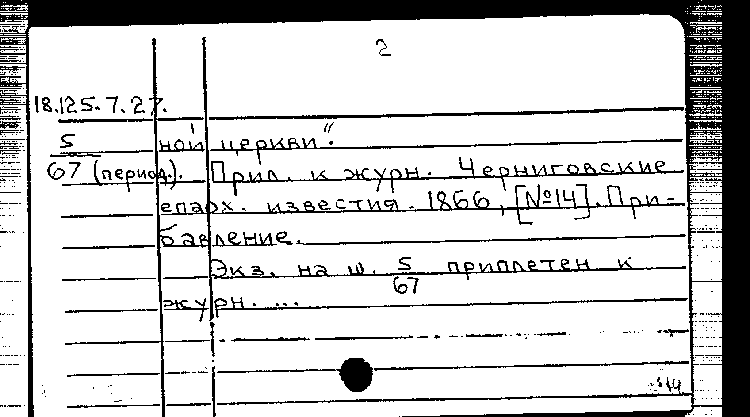 2
18.125.7.27.
5/67 (период). ной церкви".
Прил. к журн. Черниговские
епарх. известия. 1866, [№14]. При-
бавление.
Экз. на ш. 5/67 приплетен к
журн. ...